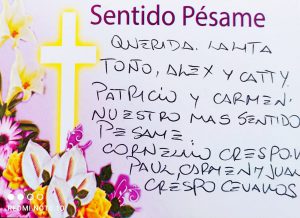 Sentido Pésame
QUERIDA. LALITA
TOÑO, ALEX Y CATTY.
PATRICIO Y CARMEN,
NUESTRO MAS SENTIDO
PESAME:
CORNELIO CRESPO.V
PAUL, CARMEN Y JUAN
CRESPO CEVALLOS
REDMI NOTE 9